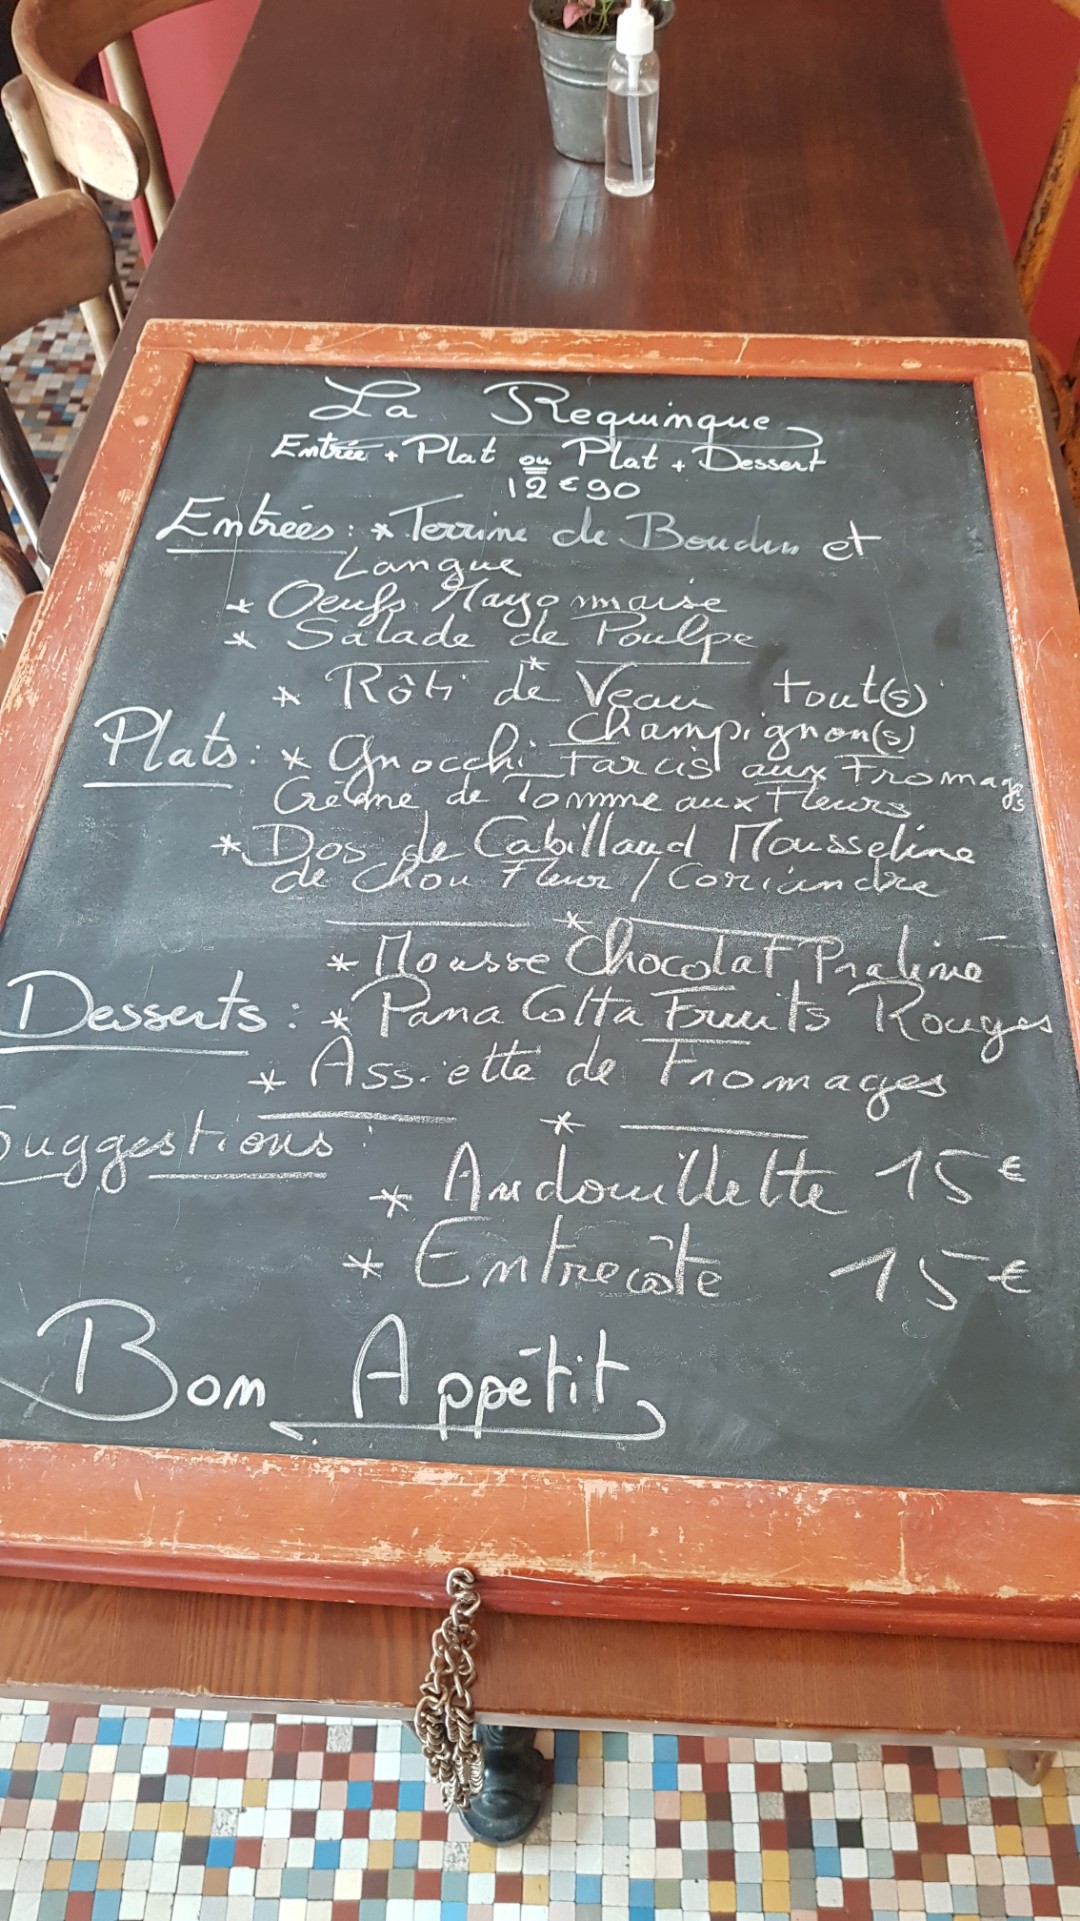 La Requinque
Entrée + Plat ou Plat + Dessert
12€90
Entrées: * Terrine de Boudin et
Langue
* Oeufs Mayonnaise
* Salade de Poulpe
*
* Rôti de Veau tout(s)
Champignon(s)
Plats: * Gnocchi Farcis aux Fromages
Crème de Tomme aux Fleurs
* Dos de Cabillaud Mousseline
de Chou Fleur / Coriandre
*
* Mousse Chocolat Praliné
Desserts: * Pana Cotta Fruits Rouges
* Assiette de Fromages
*
Suggestions:
* Andouillette 15€
* Entrecôte 15€
Bon Appétit